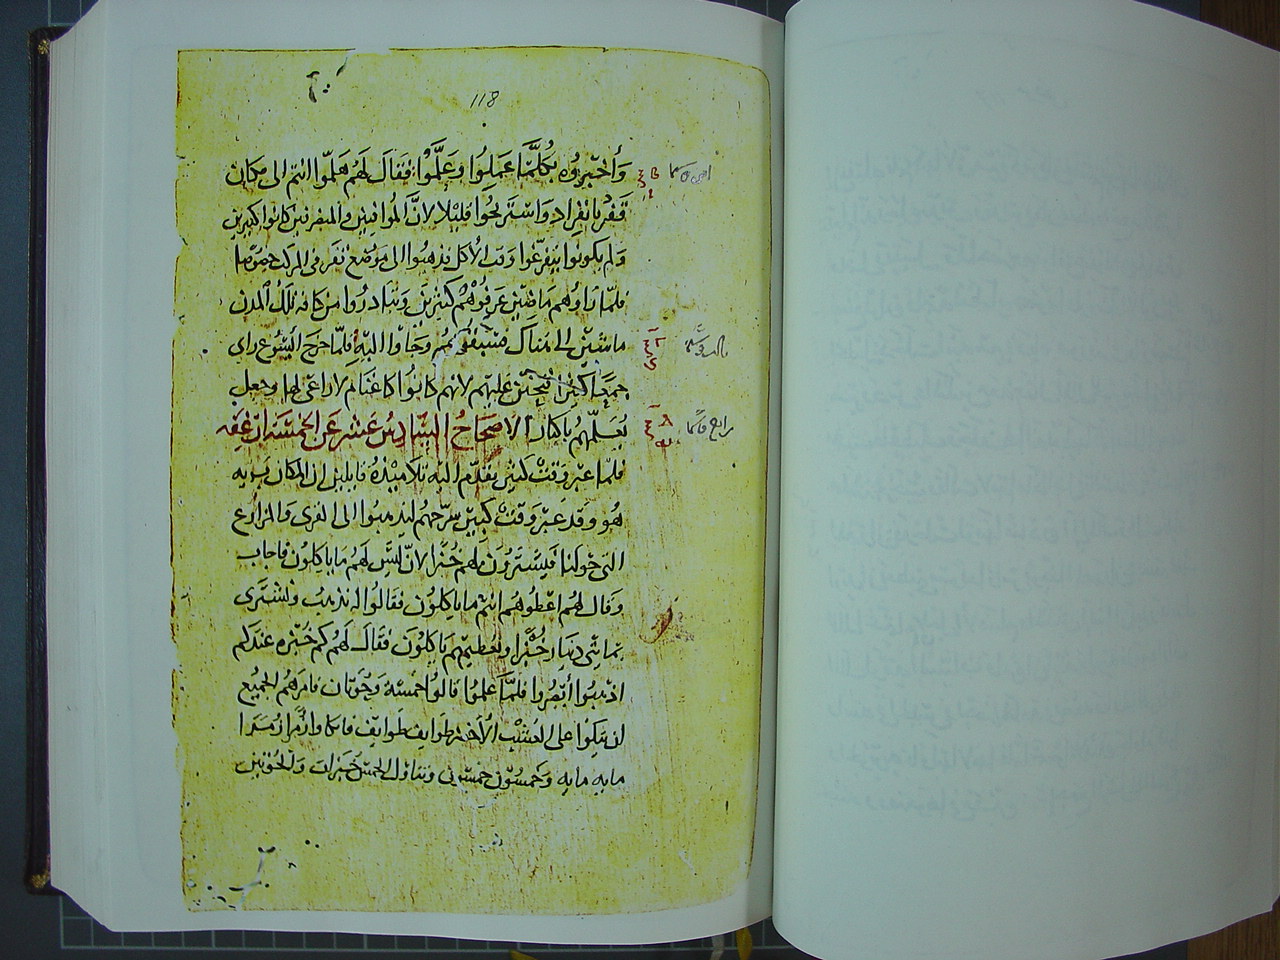 118
وَأخبَروُه بكُلمَّا عَملِوُا وَعَلَّموْا فقَالَ لَهُم هَلمّوا انتم الى مكان
قفر بانفراد وَاستَريحُوا قليْلا لانَّ المُوافِيَين والمنصرفين كانوا كثيرين
وَلم يكونوا يتفرغوا وَقت الأكل فذهبُوا الى مَوضع قفر فى المركب خصوصًا
فلمّا رَاوهُم مَاضين عَرفوهُم كثيرين وَتبَادرُوا من كافه تلك المدن
ماشيين الى هناك فسَبَقوهُم وَجَاوا اليه فلمّا خرج اليَسُوع راى
جمعًا كثيرًا فتحنن عَليهم لانهم كانُوا كاغنام لا راعى لها وجعل
يُعلّمهُم باكثار الاصحَاحُ السَّادسُ عشر عَن الخمسَة ارغفه
فلمّا عبَر وَقت كثير تقدّم اليه تلاميذه قايلين ان المكان بريه
هُو وقد عَبر وَقتْ كبير سرّحهُم ليذهبوا الى القرى وَالمزارع
التى حَولنا فيَشترُون لهم خبزًا لانّ ليسَ لهم ما ياكلون فاجاب
وَقال لهُم اعطُوهُم انتم ما ياكلون فقالوُا له نذهبُ ونشترى
بمايتى دينار خُبْزًا ونعطيهم مَا ياكلون فقالَ لهُم كم خبزه عندكم
اذهبوا أبْصُروا فلمّا عَلمُوا قالوُا خمسَة وَحُوتان فامرهُم الجميع
ان يتكوا على العُشب الأخضر طوايف طوايف فاتكاوا زُمرا زمرا
مايه مايه وَخمسُون خمسُون وتناول الخمسَ خبزات والحُوتين